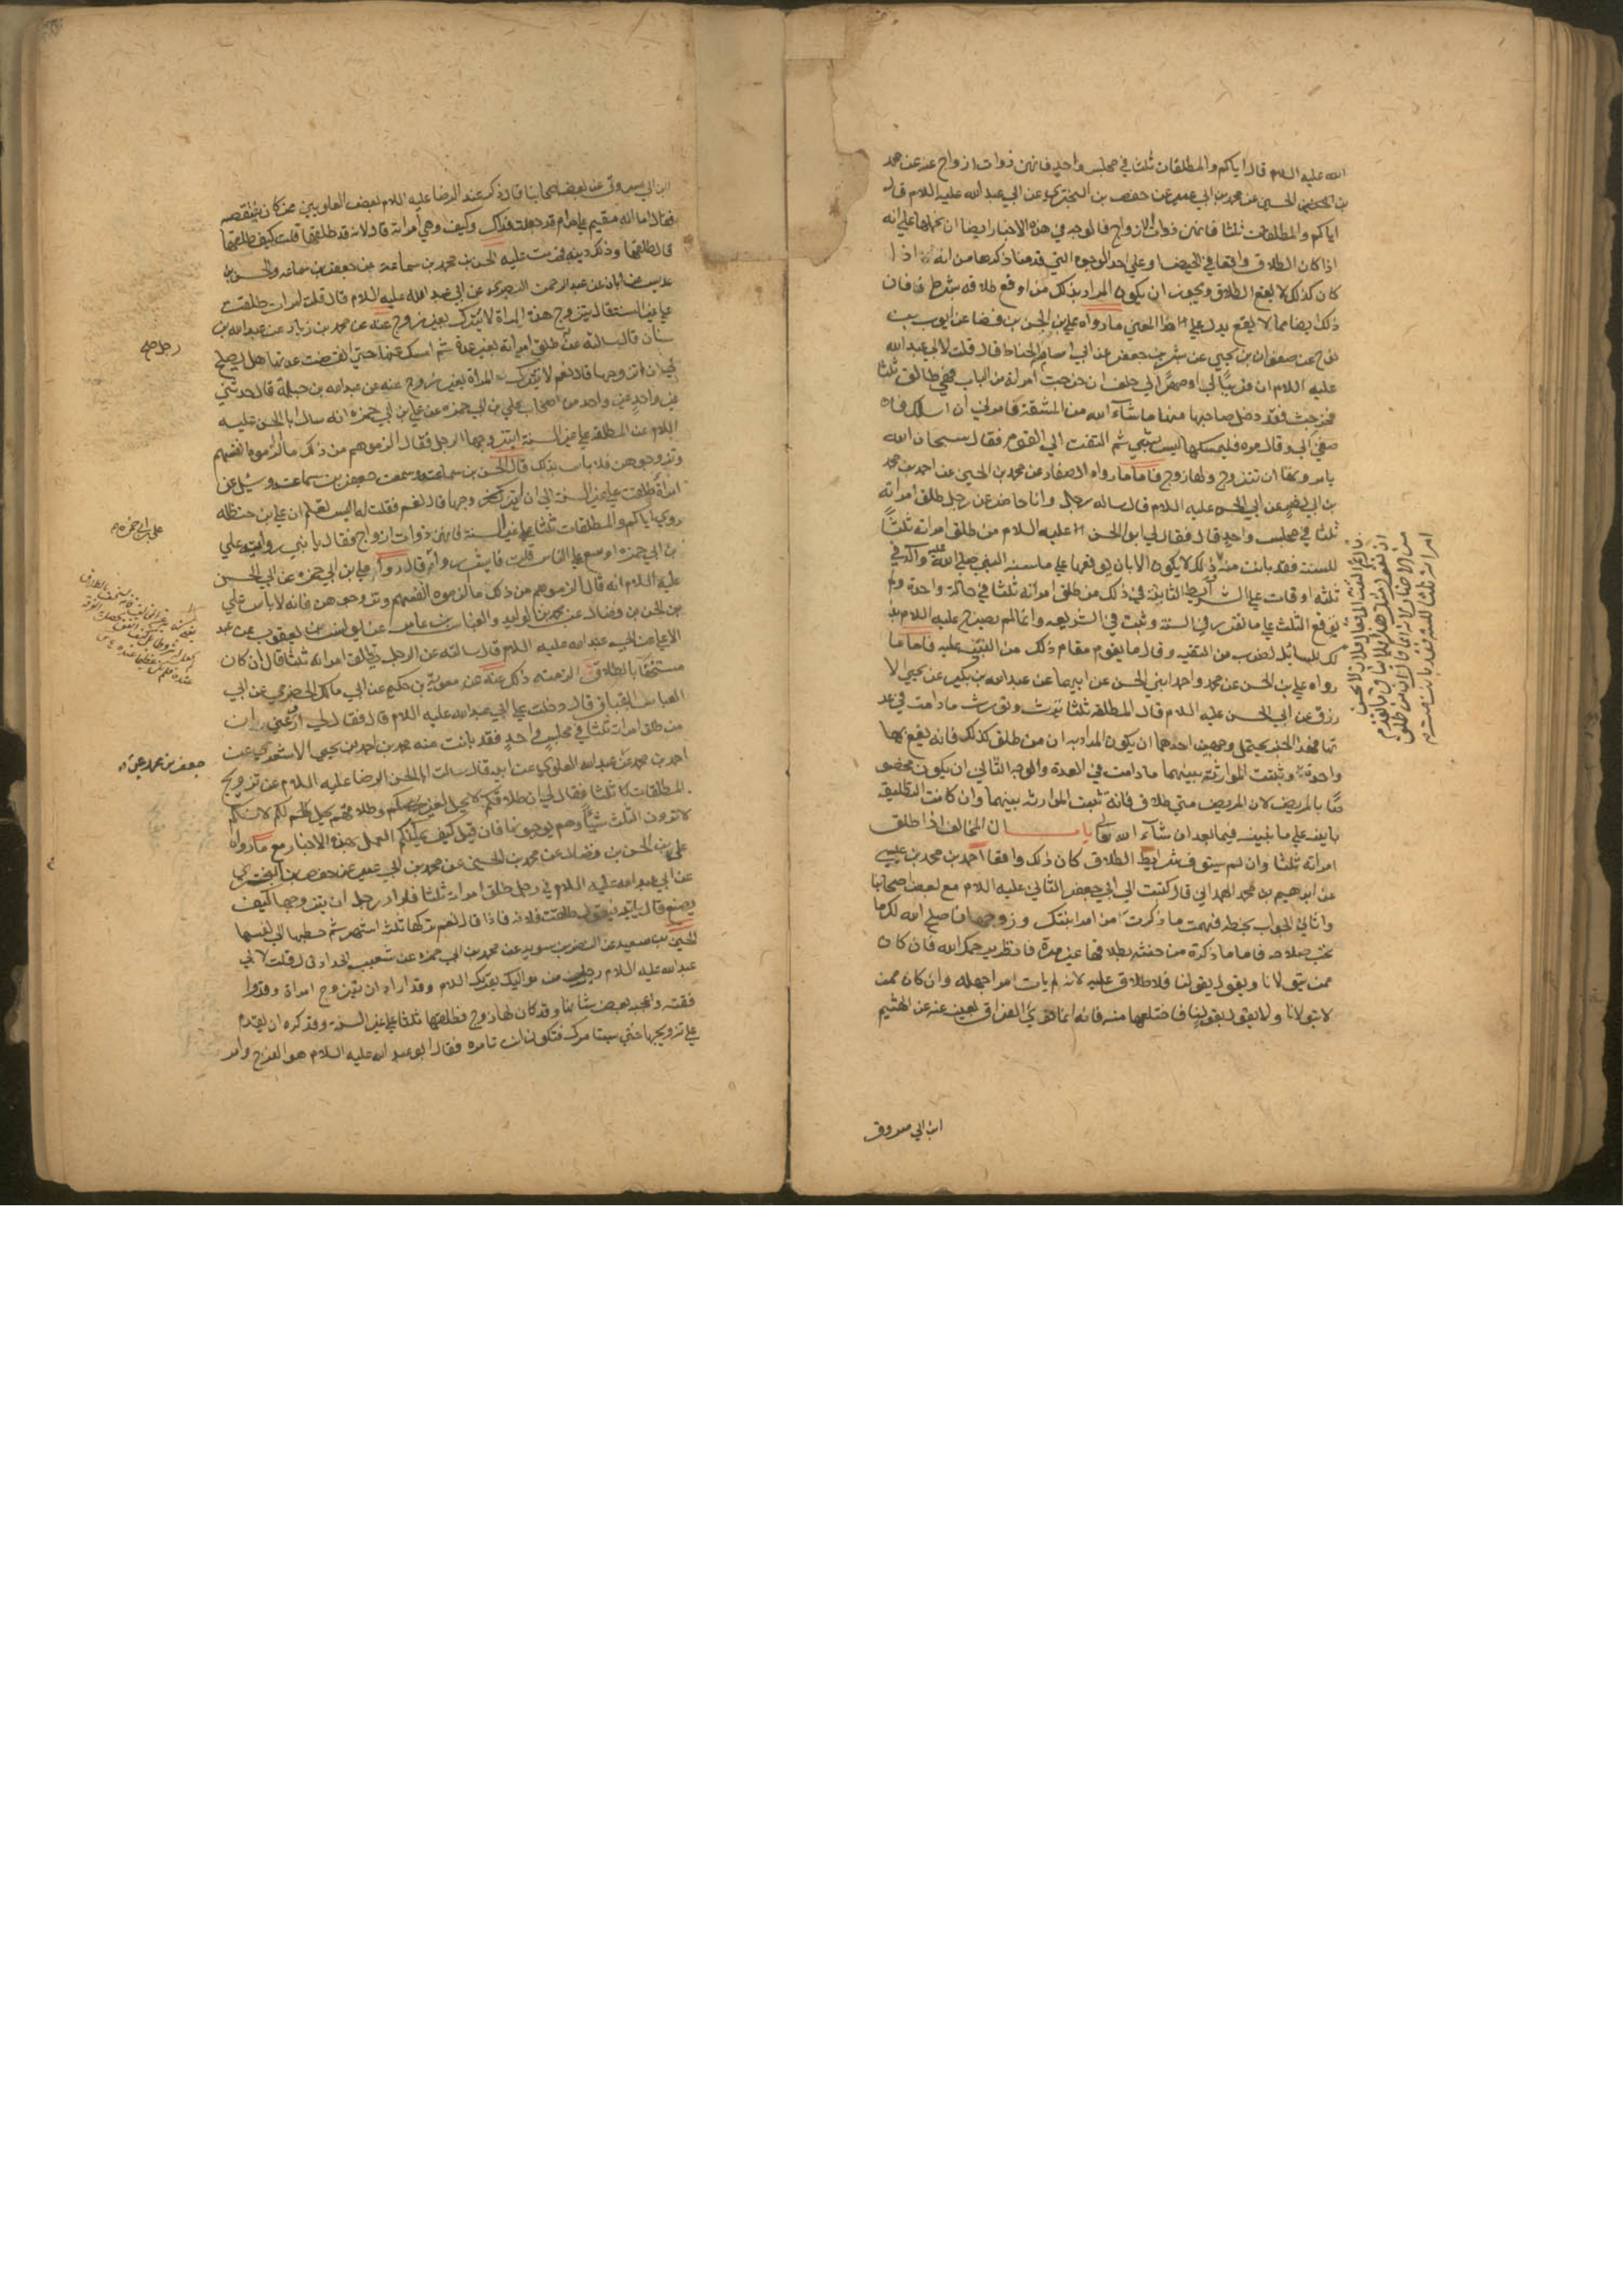 الله عليه السلام قال اياكم والمطلقات ثلث في مجلس واحد فانهن ذوات ازواج عنه عن محمد
بن الحسين عن محمد بن ابي عمير عن حفص بن البختري عن ابي عبد الله عليه السلام قال
اياكم والمطلقات ثلثا فانهن ذوات الازواج فالوجه في هذه الاخبار ايضا ان نحملها على انه
اذا كان الطلاق واقعا في الحيض او على احد الوجوه التي قدمنا ذكرها من انه اذا
كان كذلك لا يقع الطلاق ويجوز ان يكون المراد بذلك من اوقع طلاقه بشرط فان
ذلك ايضا مما لا يقع يدل على هذا المعنى ما رواه علي بن الحسن بن فضال عن ايوب بن
نوح عن صفوان بن يحيى عن بشر بن جعفر عن ابي اسامة الحناط قال قلت لابي عبد الله
عليه السلام ان قريبا لي او صهرا لي حلف ان خرجت امراته من الباب فهي طالق ثلثا
فخرجت فقد دخل صاحبها منها ما شآء الله من المشقة فامرني ان اسالك فا
صغى الي وقال مره فليمسكها ليس بشي ثم التفت الى القوم فقال سبحان الله
يامرونها ان تتزوج ولها زوج فاما ما رواه الصفار عن محمد بن الحسين عن احمد بن محمد
بن ابي نصر عن ابي الحسن عليه السلام قال ساله رجل وانا حاضر عن رجل طلق امراته
ثلثا في مجلس واحد قال فقال لي ابو الحسن عليه السلام من طلق امراته ثلثا
للسنة فقد بانت منه
ثلثه اوقات على الشرايط الثابتة في ذلك من طلق امراته ثلثا في حالة واحدة ولم
يوقع الثلث على ما تقرر في السنة وثبت في الشريعه وانما لم يصرح عليه السلام بذ
لك للسائل لضرب من التقيه وقال ما يقوم مقام ذلك من التنبيه عليه فاما ما
رواه علي بن الحسن عن محمد واحمد ابني الحسن عن ابيهما عن عبد الله بن بكير عن يحيى الا
زرق عن ابي الحسن عليه السلام قال المطلقة ثلثا ترث وتورث ما دامت في عد
تها فهذا الخبر يحتمل وجهين احدهما ان يكون المراد به ان من طلق كذلك فانه تقع بها
واحدة وتثبت الموارثه بينهما ما دامت في العدة والوجه الثاني ان يكون مخصو
صا بالمريض لان المريض متى طلاق فانه تثبت الموارثه بينهما وان كانت التطليقه
باينه على ما نبينه فيما بعد ان شآء الله تعالى باب ان المخالف اذا طلق
امراته ثلثا وان لم يستوف شرايط الطلاق كان ذلك واقعا احمد بن محمد بن عيسى
عن ابراهيم بن محمد الهمداني قال كتبت الى ابي جعفر الثاني عليه السلام مع بعض اصحابنا
واتاني الجواب بخطه فهمت ما ذكرت من امر ابنتك وزوجها فاصلح الله لك ما
تحب صلاحه فاما ما ذكرته من حنثه بطلاقها غير مرة فانظر يرحمك الله فان كان
ممن يتولانا ويقول بقولنا فلا طلاق عليه لانه لم يات امرا جهله وان كان ممن
لا يتولانا ولا يقول بقولنا فاختلعها منه فانه انما نوى الفراق بعينه عنه عن الهيثم
ابن ابي مسروق
ابن ابي مسروق عن بعض اصحابنا قال ذكر عند الرضا عليه السلام بعض العلويين ممن كان ينتقصه
فقال اما انه مقيم على حرام قد جعلت فداك وكيف وهي امراته قال لانه قد طلقها قلت كيف طلقها
قال طلقها وذلك دينه فحرمت عليه الحسن بن محمد بن سماعة عن جعفر بن سماعه والحسن بن
عديس عن ابان عن عبد الرحمن البصري عن ابي عبد الله عليه السلام قال قلت امراة طلقت
على غير السنة قال يتزوج هذه المراة لا تترك بغير زوج عنه عن محمد بن زياد عن عبد الله بن
سنان قال سالته عن طلق امراته لغير عدة ثم امسك عنها حتى انقضت عدتها هل يصلح
لي ان اتزوجها قال نعم لا تترك المراة بغير زوج عنه عن عبد الله بن جبلة قال حدثني
غير واحد من اصحاب علي بن ابي حمزه عن علي بن ابي حمزه انه سال ابا الحسن عليه
السلام عن المطلقه على غير السنة ايتزوجها الرجل فقال الزموهم من ذلك ما الزموه انفسهم
وتزوجوهن فلا باس بذلك قال الحسن بن سماعة وسمعت جعفر بن سماعة وسئل عن
امراة طلقت على غير السنة الي ان اتزوجها قال نعم فقلت له اليس تعلم ان علي بن حنظله
روى اياكم والمطلقات ثلثا على غير السنة فانهن ذوات ازواج فقال يا بني رواية علي
بن ابي حمزه اوسع على الناس قلت فايش روى قال روى علي بن ابي حمزه عن ابي الحسن
عليه السلام انه قال الزموهم من ذلك ما الزموه انفسهم وتزوجوهن فانه لا باس علي
بن الحسن بن فضال عن محمد بن الوليد والعباس بن عامر عن يونس بن يعقوب عن عبد
الاعلى عن ابي عبد الله عليه السلام قال سالته عن الرجل يطلق امراته ثلثا قال ان كان
مستخفا بالطلاق الزمته ذلك عنه عن معوية بن حكيم عن ابي مالك الحضرمي عن ابي
العباس البقباق قال دخلت على ابي عبد الله عليه السلام قال فقال لي ارو عني ان
من طلق امراته ثلثا في مجلس واحد فقد بانت منه محمد بن احمد بن يحيى الاشعري عن
احمد بن محمد عن عبد الله العلوي عن ابيه قال سالت ابا الحسن الرضا عليه السلام عن تزويج
المطلقات ثلثا فقال لي ان طلاقكم لا يحل لغيركم وطلاقهم يحل لكم لانكم
لا ترون الثلث شيئا وهم يوجبونها فان قيل كيف يمكنكم العمل بهذه الاخبار مع ما رواه
علي بن الحسن بن فضال عن محمد بن الحسين عن محمد بن ابي عمير عن حفص بن البختري
عن ابي عبد الله عليه السلام في رجل طلق امراته ثلثا فاراد رجل ان يتزوجها كيف
يصنع قال ياتيه فيقول طلقت فلانه فاذا قال نعم تركها ثلثة اشهر ثم خطبها الى نفسها
الحسين بن سعيد عن النضر بن سويد عن محمد بن ابي حمزه عن شعيب الحداد قال قلت لابي
عبد الله عليه السلام رجل من مواليك يقريك السلام وقد اراد ان يتزوج امراة وقد وا
فقته واعجبه بعض شانها وقد كان لها زوج فطلقها ثلثا على غير السنة وقد كره ان يقدم
على تزويجها حتى يستامرك فتكون انت تامره فقال ابو عبد الله عليه السلام هو الفرج وامر
علي بن ابي حمزه
جعفر بن محمد بن